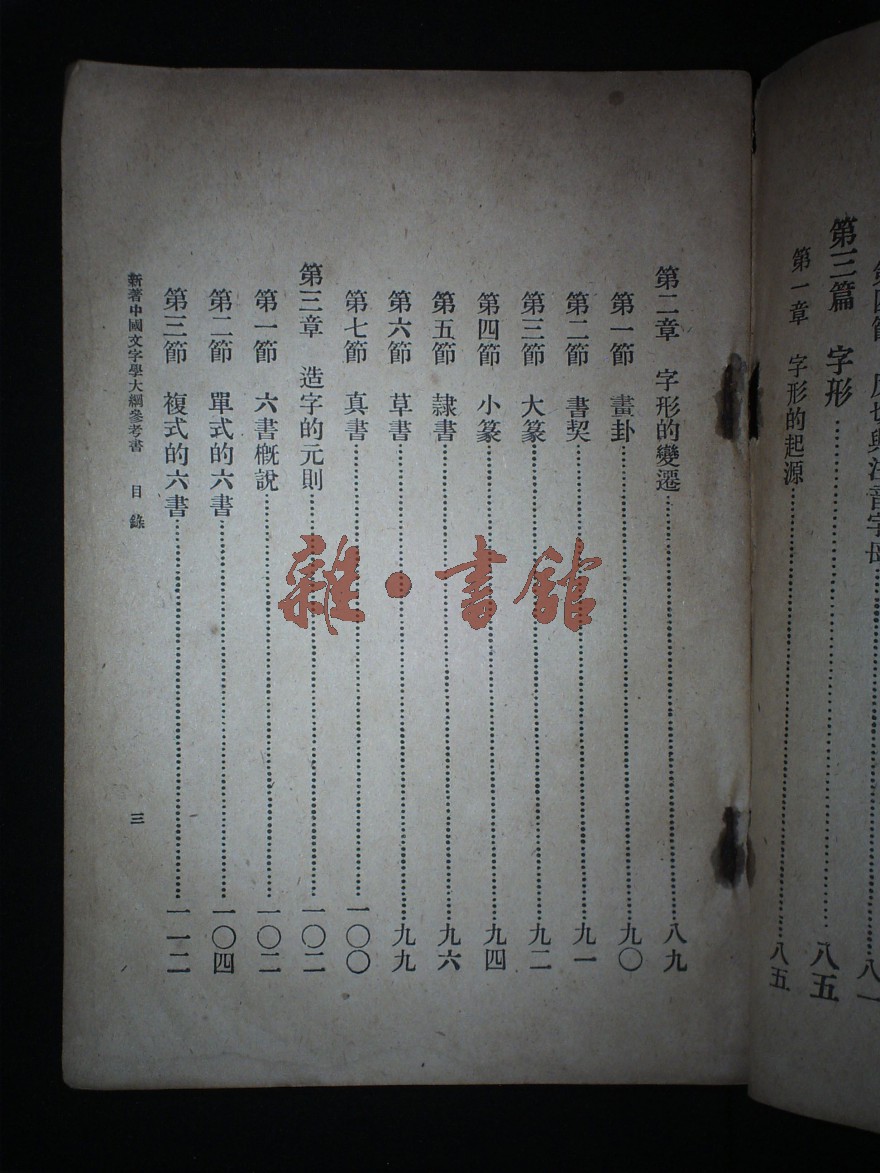 第四節 反切與注音字母……八一
第三篇 字形……八五
第一章 字形的起源……八五
第二章 字形的變遷……八九
第一節 畫卦……九〇
第二節 書契……九一
第三節 大篆……九二
第四節 小篆……九四
第五節 隸書……九六
第六節 草書……九九
第七節 真書……一〇〇
第三章 造字的元則……一〇二
第一節 六書概說……一〇二
第二節 單式的六書……一〇四
第三節 複式的六書……一一二
新著中國文字學大綱參考書 目錄 三
雜·書館